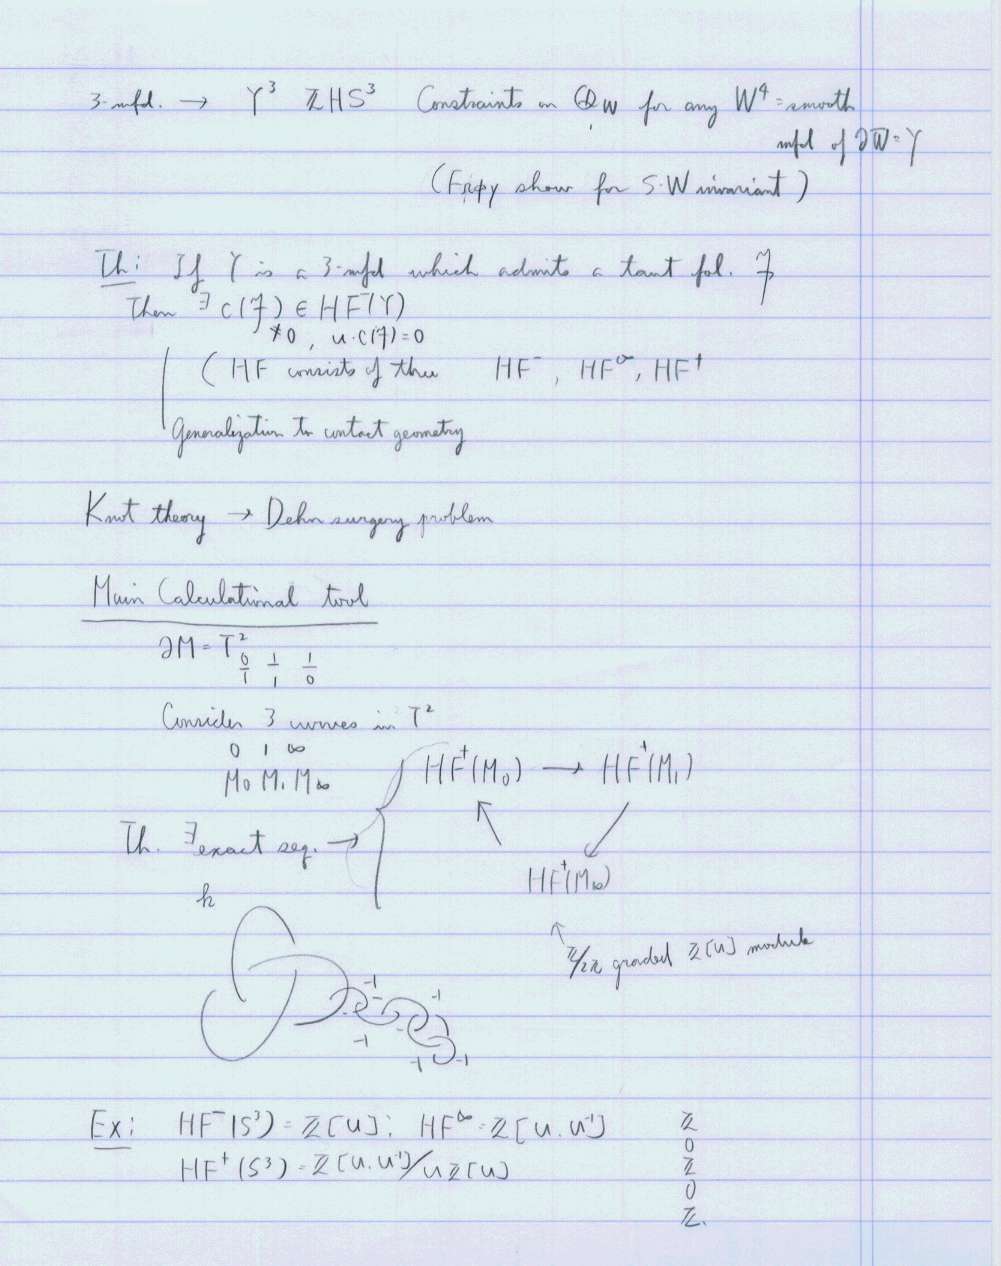 3-mfd. → Y³ ZHS³ Constraints on Q_W for any W⁴ = smooth
mfd of ∂W = Y
( show for S-W invariant )
Th: If Y is a 3-mfd which admits a taut fol. F
Then ∃ c(F) ∈ HF(Y)
≠0 , u·c(F)=0
( HF consists of three HF⁻, HF^∞, HF⁺
Generalization to contact geometry
Knot theory → Dehn surgery problem
Main Calculational tool
∂M = T²
0/1 1/1 1/0
Consider 3 curves in T²
0 1 ∞
M₀ M₁ M∞
HF⁺(M₀) → HF⁺(M₁)
Th. ∃ exact seq. →
HF⁺(M∞)
k
Z/2Z graded Z[U] module
-1 -1
-1
-1 -1
Ex: HF⁻(S³) = Z[U]; HF^∞ = Z[U.U⁻¹] Z
0
HF⁺(S³) = Z[U.U⁻¹]/UZ[U] Z
0
Z.